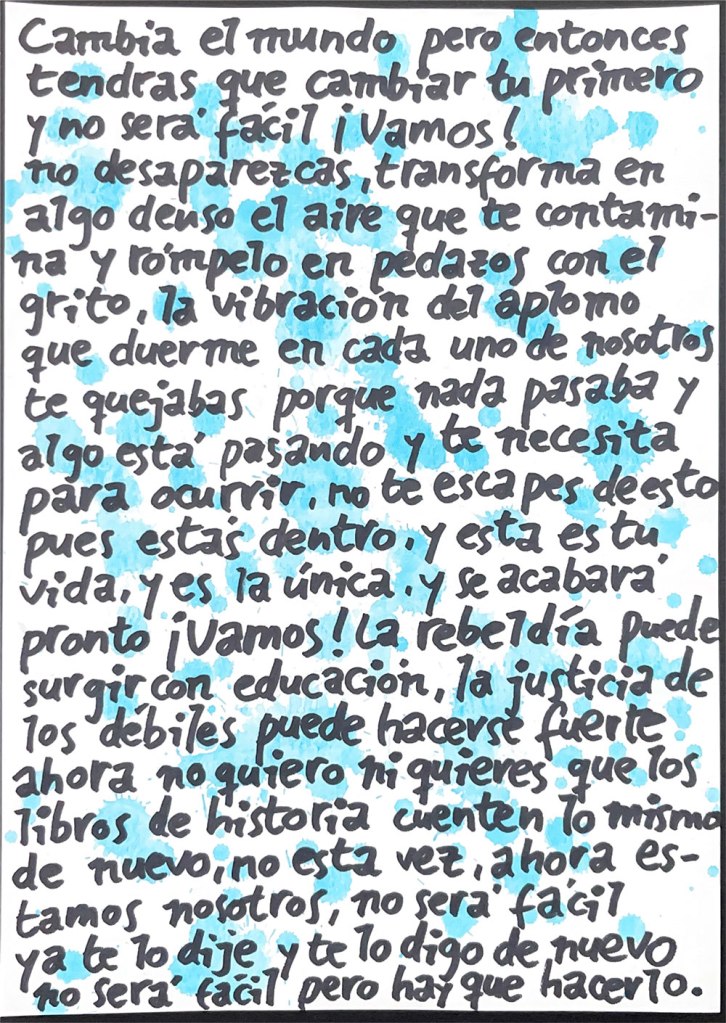 Cambia el mundo pero entonces
tendras que cambiar tu primero
y no será fácil ¡Vamos!
no desaparezcas, transforma en
algo denso el aire que te contami-
na y rómpelo en pedazos con el
grito, la vibración del aplomo
que duerme en cada uno de nosotros
te quejabas porque nada pasaba y
algo está pasando y te necesita
para ocurrir, no te escapes de esto
pues estás dentro, y esta es tu
vida, y es la única, y se acabará
pronto ¡Vamos! La rebeldía puede
surgir con educación, la justicia de
los débiles puede hacerse fuerte
ahora no quiero ni quieres que los
libros de historia cuenten lo mismo
de nuevo, no esta vez, ahora es-
tamos nosotros, no será fácil
ya te lo dije y te lo digo de nuevo
no será fácil pero hay que hacerlo.